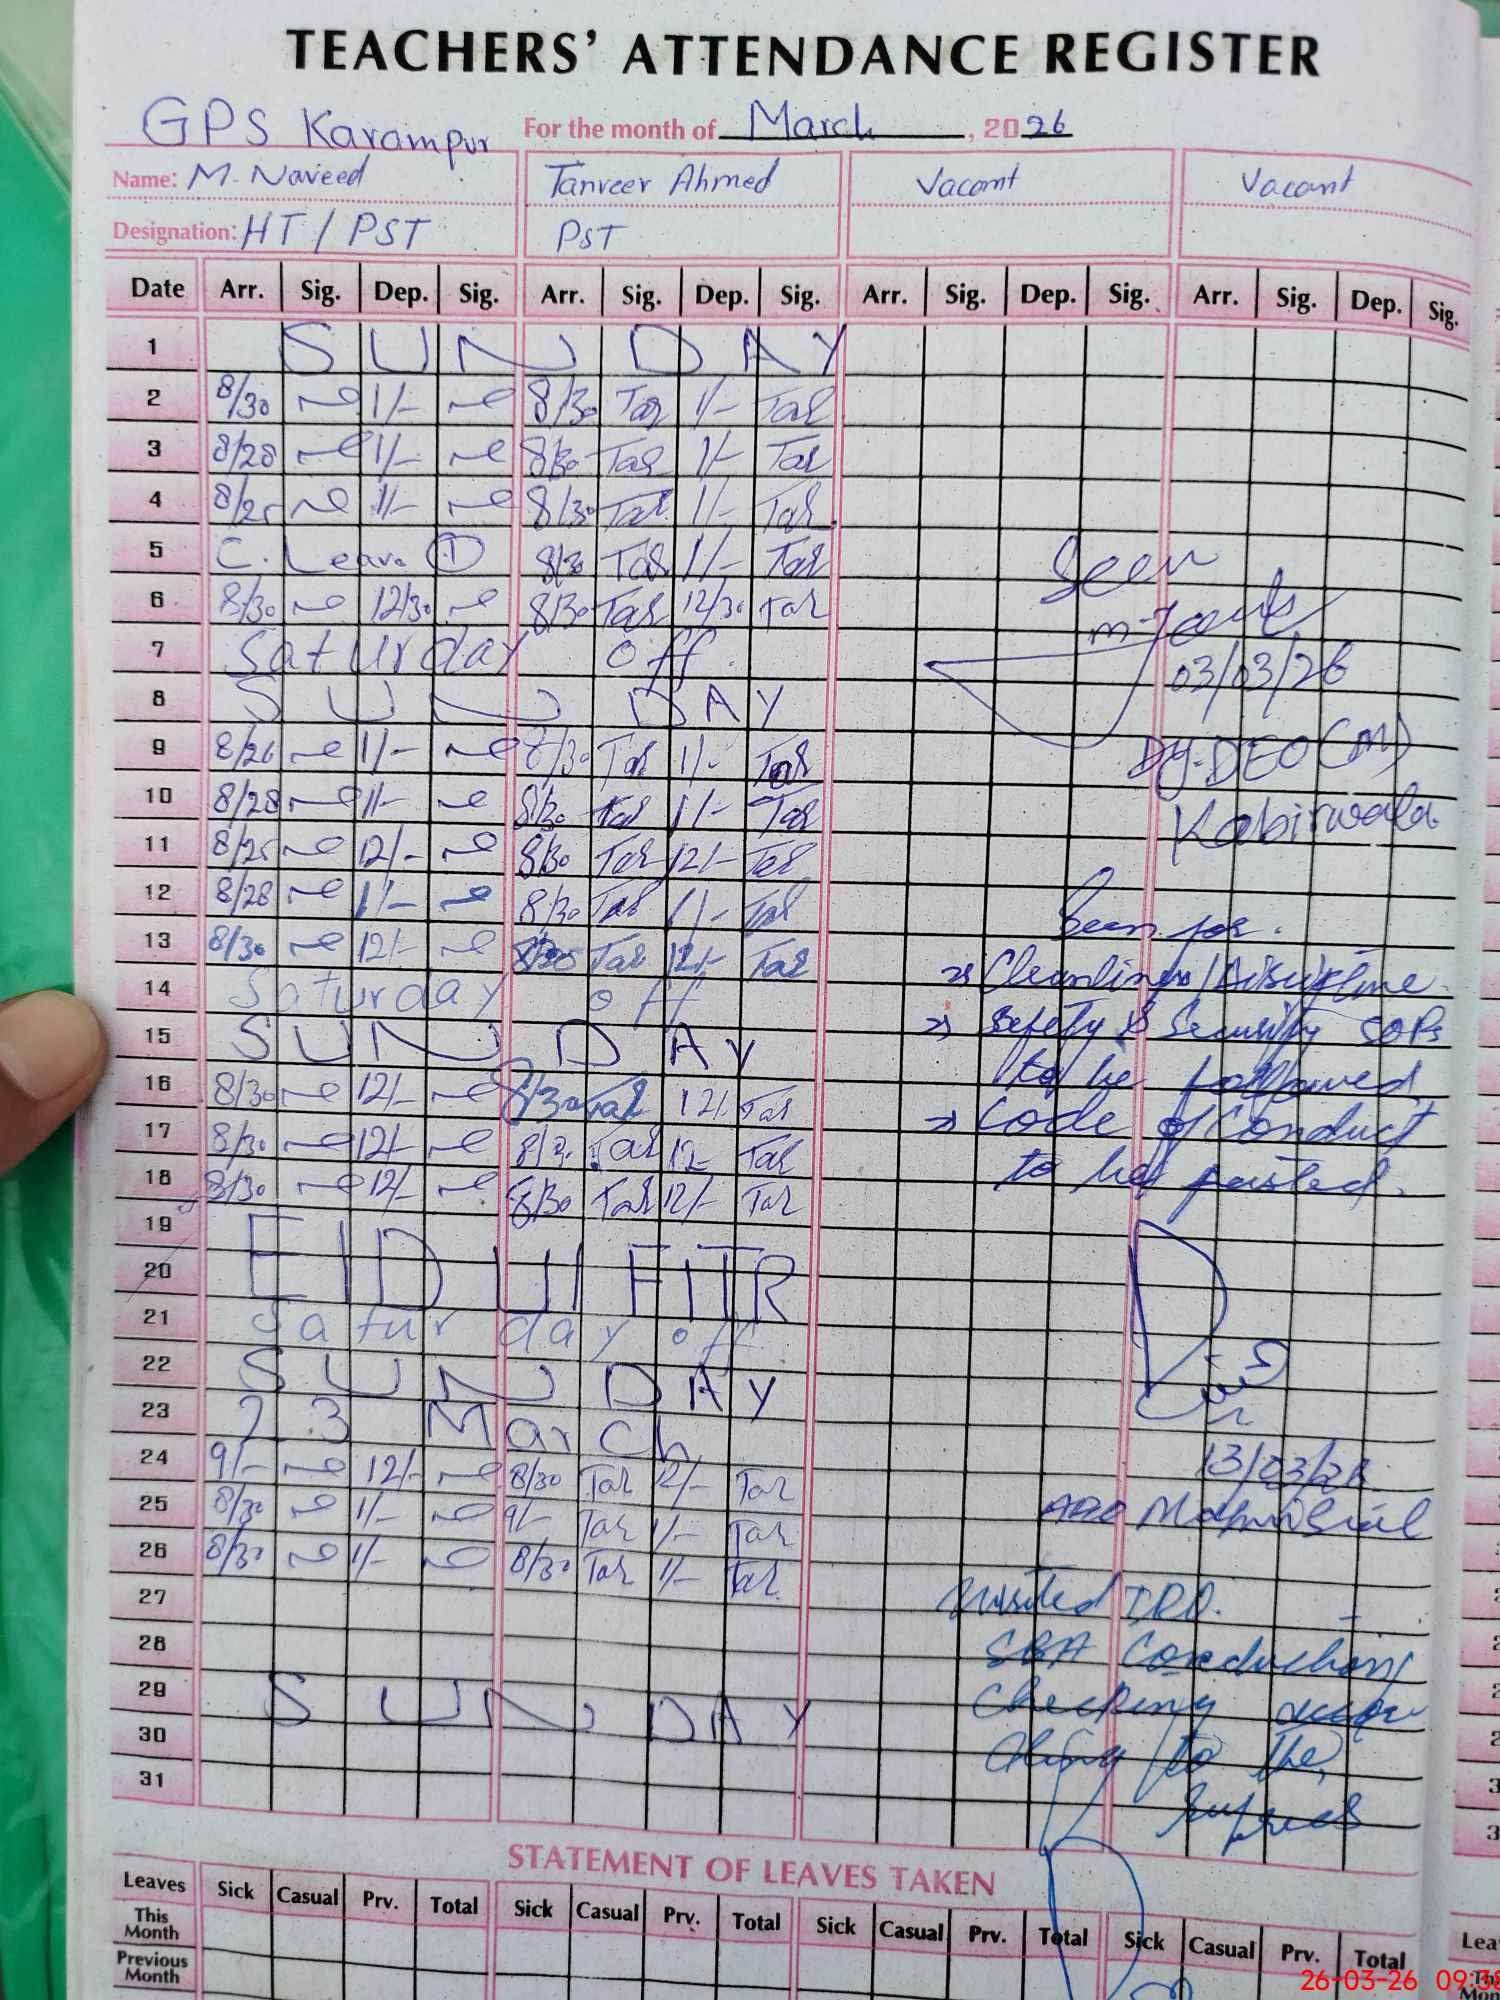 TEACHERS' ATTENDANCE REGISTER
GPS Karampur For the month of March, 2026
Name: M. Naveed Tanveer Ahmed Vacant Vacant
Designation: HT / PST PST
Date Arr. Sig. Dep. Sig. Arr. Sig. Dep. Sig. Arr. Sig. Dep. Sig. Arr. Sig. Dep. Sig.
1 SUNDAY
2 8/30 1/- 8/30 Tar 1/- Tar
3 8/28 1/- 8/30 Tar 1/- Tar
4 8/25 1/- 8/30 Tar 1/- Tar
5 C. Leave 1 8/30 Tar 1/- Tar
6 8/30 12/30 8/30 Tar 12/30 Tar
7 Saturday off
8 SUNDAY
9 8/26 1/- 8/30 Tar 1/- Tar
10 8/28 1/- 8/30 Tar 1/- Tar
11 8/25 12/- 8/30 Tar 12/- Tar
12 8/28 1/- 8/30 Tar 1/- Tar
13 8/30 12/- Tar 12/- Tar
14 Saturday off
15 SUNDAY
16 8/30 12/- 8/30 Tar 12/- Tar
17 8/30 12/- 8/3. Tar 12- Tar
18 8/30 12/- 8/30 Tar 12/- Tar
19
20 EID UL FITR
21 Saturday off
22 SUNDAY
23 23 March
24 9/- 12/- 8/30 Tar 12/- Tar
25 8/30 1/- 9/- Tar 1/- Tar
26 8/30 1/- 8/30 Tar 1/- Tar
27
28
29 SUNDAY
30
31
Seen
03/03/26
Dy. DEO (M)
Kabirwala
Seen for.
Cleanliness / Discipline
Safety & Security SOPs
to be followed
Code of Conduct
to be pasted.
13/03/26
AEO
Visited
SBA Conduction
Checking
to the
STATEMENT OF LEAVES TAKEN
Leaves Sick Casual Prv. Total Sick Casual Prv. Total Sick Casual Prv. Total Sick Casual Prv. Total
This Month
Previous Month
26-03-26 09:38